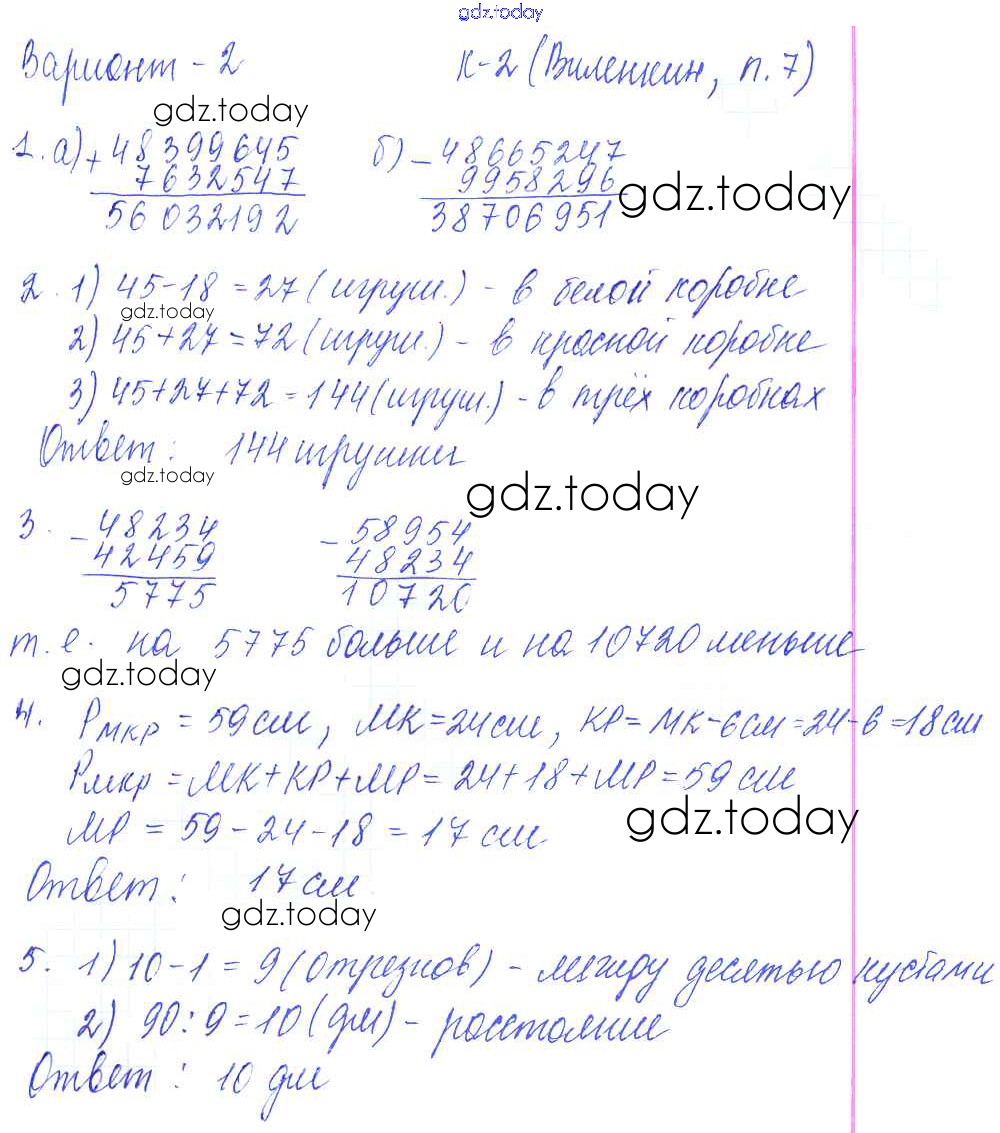 gdz.today
Вариант - 2 К-2 (Виленкин, п. 7)
gdz.today
1. а) + 48 399 645 б) - 48665247
7632547 9958296 gdz.today
56 032192 38706951
2. 1) 45-18 = 27 (игруш.) - в белой коробке
gdz.today
2) 45+27=72 (игруш.) - в красной коробке
3) 45+27+72=144 (игруш.) - в трёх коробках
Ответ: 144 игрушки
gdz.today
gdz.today
3. - 48234 - 58954
42459 48234
5775 10720
т. е. на 5775 больше и на 10720 меньше
gdz.today
4. Pмкр = 59 см, МК=24см, КР= МК-6см=24-6=18см
Pмкр = МК+КР+МР= 24+18+МР=59 см
МР = 59-24-18 = 17 см gdz.today
Ответ: 17 см
gdz.today
5. 1) 10-1 = 9 (отрезков) - между десятью кустами
2) 90:9=10 (дм) - расстояние
Ответ: 10 дм